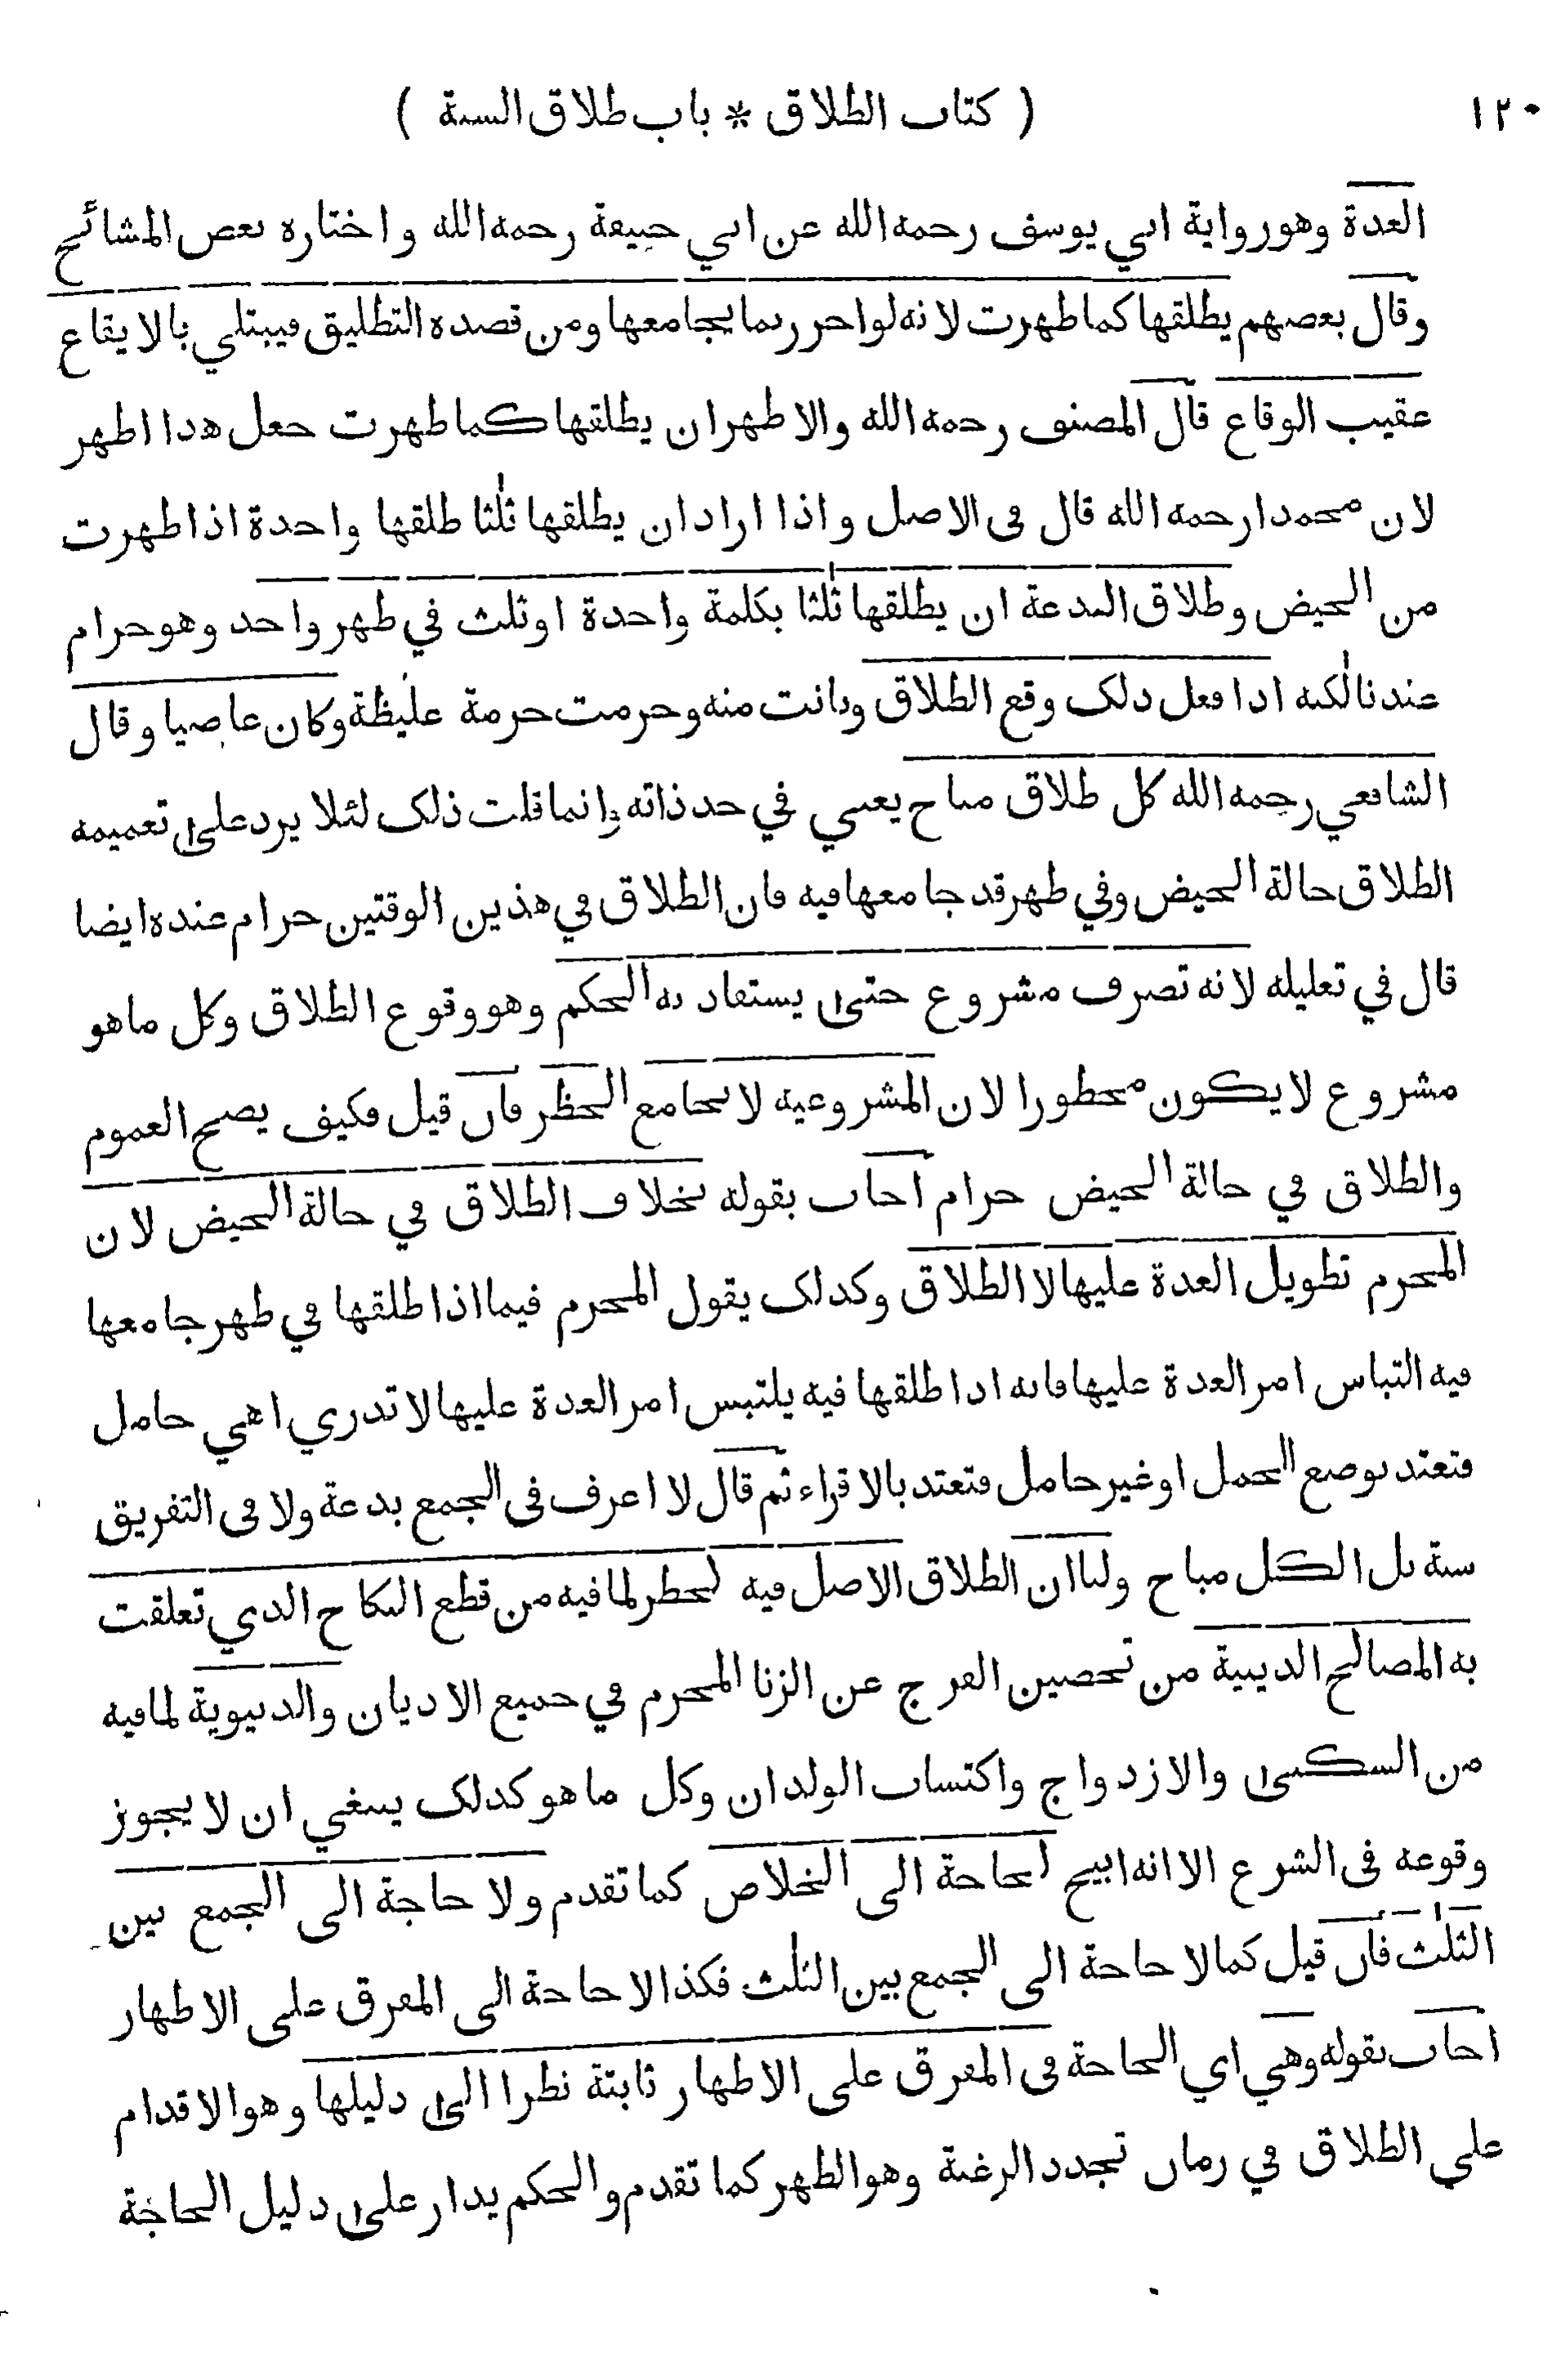 ١٢٠ ( كتاب الطلاق * باب طلاق السنة )
العدة وهو رواية ابي يوسف رحمه الله عن ابي حنيفة رحمه الله واختاره بعض المشائخ
وقال بعضهم يطلقها كما طهرت لانه لو اخر ربما يجامعها ومن قصده التطليق فيبتلي بالايقاع
عقيب الوقاع قال المصنف رحمه الله والاظهر ان يطلقها كما طهرت جعل هذا اظهر
لان محمدا رحمه الله قال في الاصل واذا اراد ان يطلقها ثلٰثا طلقها واحدة اذا طهرت
من الحيض وطلاق البدعة ان يطلقها ثلٰثا بكلمة واحدة او ثلث في طهر واحد وهو حرام
عندنا لٰكنه اذا فعل ذلك وقع الطلاق وبانت منه وحرمت حرمة غليظة وكان عاصيا وقال
الشافعي رحمه الله كل طلاق مباح يعني في حد ذاته وانما قلت ذلك لئلا يرد على تعميمه
الطلاق حالة الحيض وفي طهر قد جامعها فيه فان الطلاق في هذين الوقتين حرام عنده ايضا
قال في تعليله لانه تصرف مشروع حتى يستفاد به الحكم وهو وقوع الطلاق وكل ما هو
مشروع لا يكون محظورا لان المشروعية لا تجامع الحظر فان قيل فكيف يصح العموم
والطلاق في حالة الحيض حرام اجاب بقوله بخلاف الطلاق في حالة الحيض لان
المحرم تطويل العدة عليها لا الطلاق وكذلك يقول المحرم فيما اذا طلقها في طهر جامعها
فيه التباس امر العدة عليها فانه اذا طلقها فيه يلتبس امر العدة عليها لا تدري اهي حامل
فتعتد بوضع الحمل او غير حامل فتعتد بالاقراء ثم قال لا اعرف في الجمع بدعة ولا في التفريق
سنة بل الكل مباح ولنا ان الطلاق الاصل فيه لحظر لما فيه من قطع النكاح الذي تعلقت
به المصالح الدينية من تحصين الفرج عن الزنا المحرم في جميع الاديان والدنيوية لما فيه
من السكنى والازدواج واكتساب الولدان وكل ما هو كذلك ينبغي ان لا يجوز
وقوعه في الشرع الا انه ابيح لحاجة الى الخلاص كما تقدم ولا حاجة الى الجمع بين
الثلٰث فان قيل كما لا حاجة الى الجمع بين الثلٰث فكذا لا حاجة الى المفرق على الاطهار
اجاب بقوله وهي اي الحاجة في المفرق على الاطهار ثابتة نظرا الى دليلها وهو الاقدام
على الطلاق في زمان تجدد الرغبة وهو الطهر كما تقدم والحكم يدار على دليل الحاجة